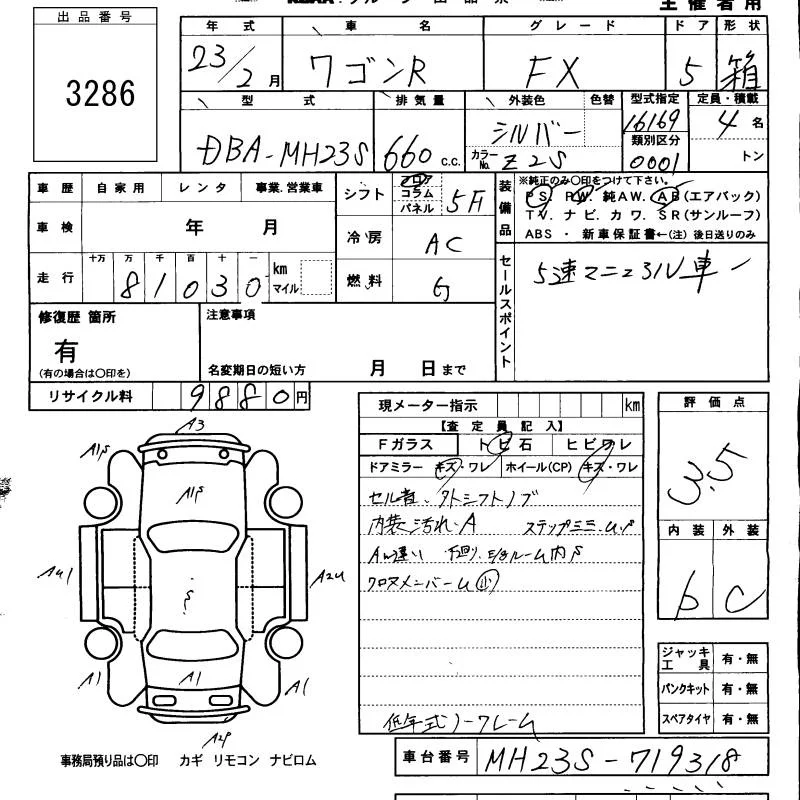 主催者用
出品番号
3286
年式 車名 グレード ドア 形状
23/2月 ワゴンR FX 5 箱
型式 排気量 外装色 色替 型式指定 定員・積載
DBA-MH23S 660 c.c. シルバー カラーNo. Z2S 16169 類別区分 0001 4名 トン
車歴 自家用 レンタ 事業.営業車
車検 年 月
走行 十万 万 千 百 十 一 81030 km マイル
シフト フロア コラム パネル 5F
冷房 AC
燃料 G
装備品 ※純正のみ〇印をつけて下さい。
PS. PW. 純AW. AB(エアバック)
TV. ナビ. カワ. SR(サンルーフ)
ABS ・ 新車保証書←(注) 後日送りのみ
セールスポイント 5速マニュアル車
修復歴 箇所 有 (有の場合は〇印を)
注意事項
名変期日の短い方 月 日まで
リサイクル料 9880円
現メーター指示 km
【査定員記入】
Fガラス トビ石 ヒビワレ
ドアミラー キズ・ワレ ホイール(CP) キズ・ワレ
社外シフトノブ
内装汚れ.A
クロスメンバーU 小
低年式ノークレーム
評価点
3.5
内装 外装
b C
ジャッキ工具 有・無
パンクキット 有・無
スペアタイヤ 有・無
A3
A1S
A1S
AU1
A2U
S
A1
A1
A1
A2P
事務局預り品は〇印 カギ リモコン ナビロム
車台番号 MH23S-719318